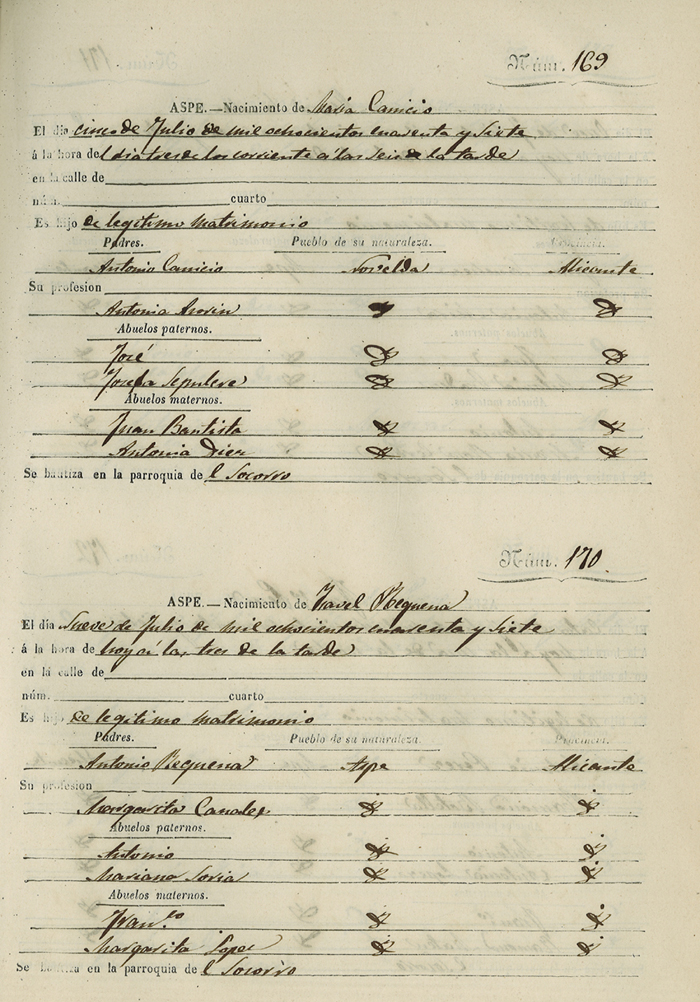 Núm. 169
ASPE.—Nacimiento de Maria Canicio
El dia cinco de Julio de mil ochocientos cuarenta y Siete
á la hora del dia tres de los corriente a las seis de la tarde
en la calle de
núm. cuarto
Es hijo de legitimo matrimonio
Padres. Pueblo de su naturaleza. Provincia.
Antonio Canicio Novelda Alicante
Su profesion
Antonia
Abuelos paternos.
José
Josefa Sepulcre
Abuelos maternos.
Juan Bautista
Antonia Diez
Se bautiza en la parroquia del Socorro
Núm. 170
ASPE.—Nacimiento de Ysavel Requena
El dia Nueve de Julio de mil ochocientos cuarenta y Siete
á la hora de hoy á las tres de la tarde
en la calle de
núm. cuarto
Es hijo de legitimo matrimonio
Padres. Pueblo de su naturaleza. Provincia.
Antonio Requena Aspe Alicante
Su profesion
Margarita Canales
Abuelos paternos.
Antonio
Mariana Soria
Abuelos maternos.
Fran.co
Margarita Lopez
Se bautiza en la parroquia del Socorro